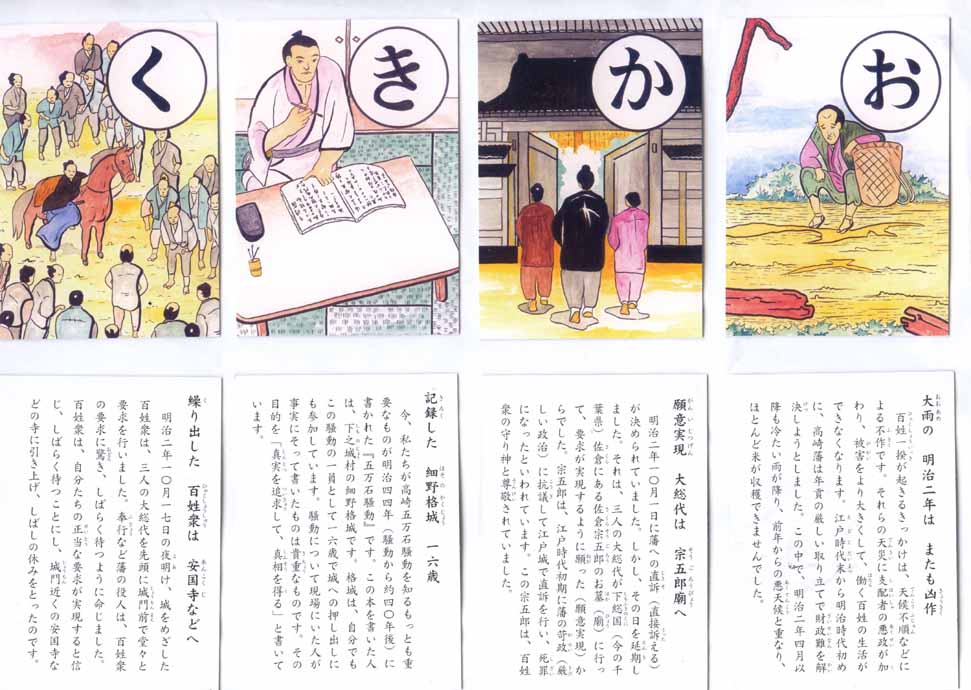 お
か
き
く
大雨の　明治二年は　またも凶作
百姓一揆が起きるきっかけは、天候不順などに
よる不作です。それらの天災に支配者の悪政が加
わり、被害をより大きくして、働く百姓の生活が
できなくなります。江戸時代末から明治時代初め
に、高崎藩は年貢の厳しい取り立てで財政難を解
決しようとしました。この中で、明治二年四月以
降も冷たい雨が降り、前年からの悪天候と重なり、
ほとんど米が収穫できませんでした。
願意実現　大総代は　宗五郎廟へ
明治二年一〇月一日に藩への直訴（直接訴える）
が決められていました。しかし、その日を延期し
ました。それは、三人の大総代が下総国（今の千
葉県）佐倉にある佐倉宗五郎のお墓（廟）に行っ
て、要求が実現するように願った（願意実現）か
らでした。宗五郎は、江戸時代初期に藩の苛政（厳
しい政治）に抗議して江戸城で直訴を行い、死罪
になったといわれています。この宗五郎は、百姓
衆の守り神と尊敬されていました。
記録した　細野格城　一六歳
今、私たちが高崎五万石騒動を知るもっとも重
要なものが明治四四年（騒動から約四〇年後）に
書かれた『五万石騒動』です。この本を書いた人
は、下之城村の細野格城です。格城は、自分でも
この騒動の一員として一六歳で城への押し出しに
も参加しています。騒動について現場にいた人が
事実にそって書いたものは貴重なものです。その
目的を「真実を追求して、真相を得る」と書いて
います。
繰り出した　百姓衆は　安国寺などへ
明治二年一〇月一七日の夜明け、城をめざした
百姓衆は、三人の大総代を先頭に城門前で堂々と
要求を行いました。奉行など藩の役人は、百姓衆
の要求に驚き、しばらく待つように命じました。
百姓衆は、自分たちの正当な要求が実現すると信
じ、しばらく待つことにし、城門近くの安国寺な
どの寺に引き上げ、しばしの休みをとったのです。